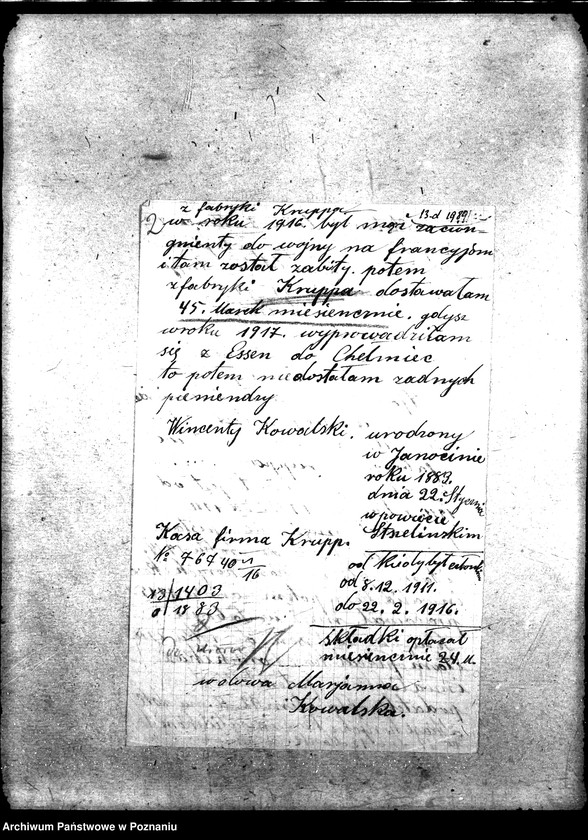 z fabryki Kruppa
13.d 1989
2 w roku 1916. był mąż zacion-
gnienty do wojny na francyjom
i tam został zabity. potem
z fabryki Kruppa dostawałam
45. Marek miesiencznie. gdysz
w roku 1917. wyprowadziłam
się z Essen do Chełmiec
to potem niedostałam zadnych
pieniendzy
Wincenty Kowalski. urodzony
w Janocinie
roku 1883.
dnia 22. Stycznia
w powiecie
Strzelinskim
Kasa firma Krupp.
No 76740
16
od kiedy był członkiem
od 8.12. 1911.
do 22. 2. 1916.
x3/1403
0/1883
składki opłacał
miesiencznie 24 M.
wdowa Marjanna
Kowalska.
Archiwum Państwowe w Poznaniu